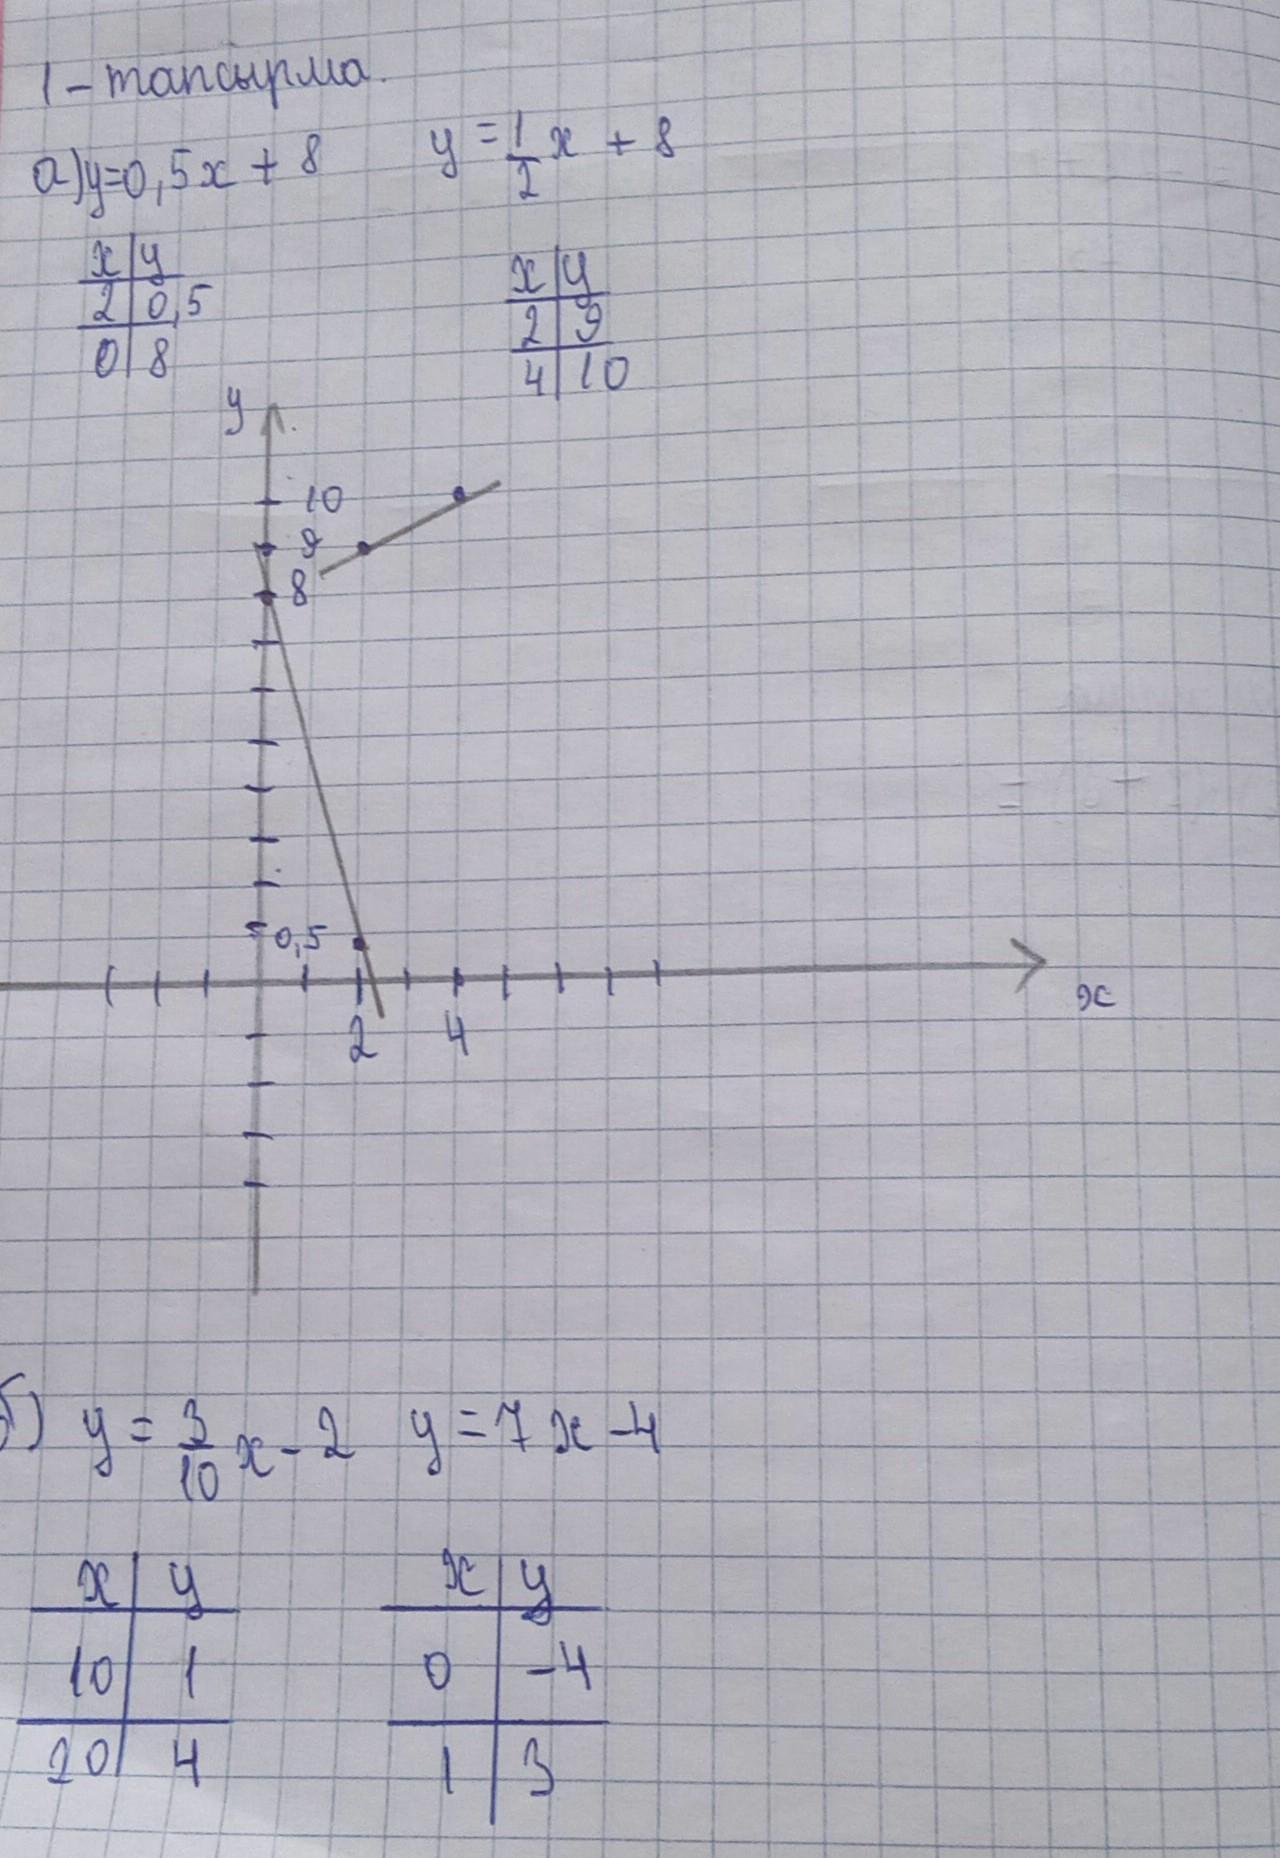 1-тапсырма.
а) y=0,5x + 8 y = 1/2 x + 8
x y x y
2 0,5 2 9
0 8 4 10
y
10
9
8
0,5
2 4
x
б) y = 3/10 x - 2 y = 7x - 4
x y x y
10 1 0 -4
20 4 1 3